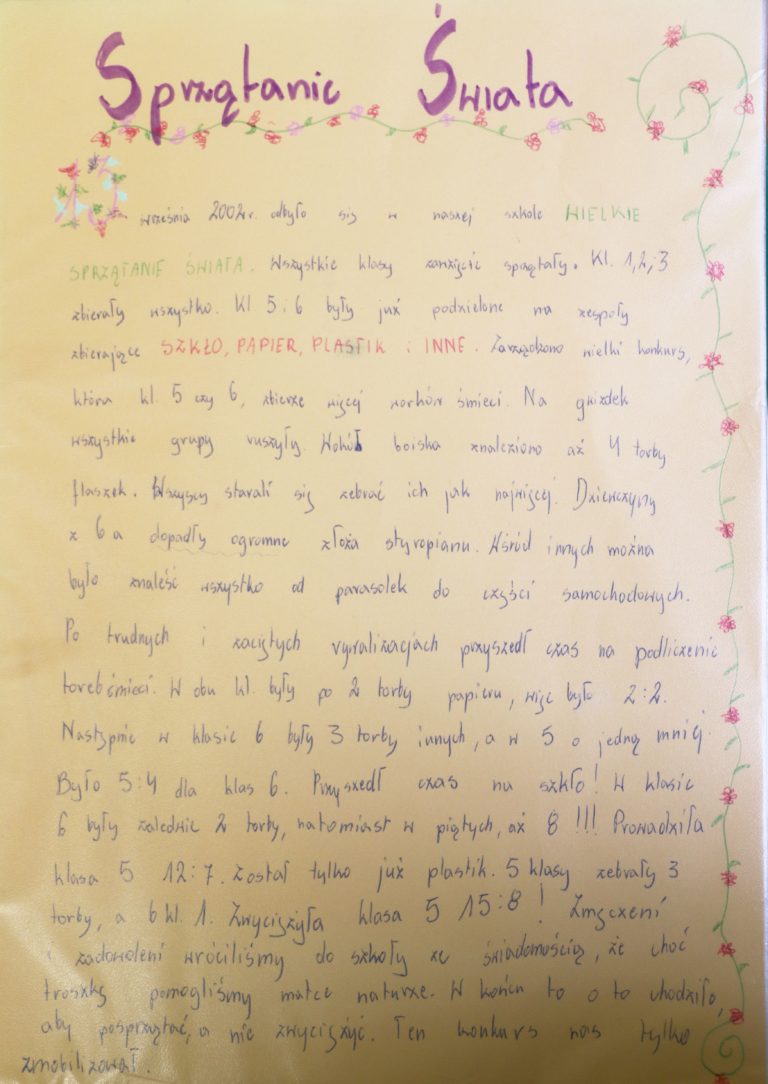 Sprzątanie Świata
13 września 2002r. odbyło się w naszej szkole WIELKIE
SPRZĄTANIE ŚWIATA. Wszystkie klasy zawzięcie sprzątały. Kl. 1,2,i 3
zbierały wszystko. Kl 5 i 6 były już podzielone na zespoły
zbierające SZKŁO, PAPIER, PLASTIK i INNE. Zarządzono wielki konkurs,
która kl. 5 czy 6, zbierze więcej worków śmieci. Na gwizdek
wszystkie grupy ruszyły. Wokół boiska znaleziono aż 4 torby
flaszek. Wszyscy starali się zebrać ich jak najwięcej. Dziewczyny
z 6a dopadły ogromne złoża styropianu. Wśród innych można
było znaleść wszystko od parasolek do części samochodowych.
Po trudnych i zaciętych rywalizacjach przyszedł czas na podliczenie
toreb śmieci. W obu kl. były po 2 torby papieru, więc było 2:2.
Następnie w klasie 6 były 3 torby innych, a w 5 o jedną mniej.
Było 5:4 dla klas 6. Przyszedł czas na szkło! W klasie
6 były zaledwie 2 torby, natomiast w piątych, aż 8 !!! Prowadziła
klasa 5 12:7. Został tylko już plastik. 5 klasy zebrały 3
torby, a 6 kl. 1. Zwyciężyła klasa 5 15:8! Zmęczeni
i zadowoleni wróciliśmy do szkoły ze świadomością, że choć
troszkę pomogliśmy matce naturze. W końcu to o to chodziło,
aby posprzątać, a nie zwyciężyć. Ten konkurs nas tylko
zmobilizował.